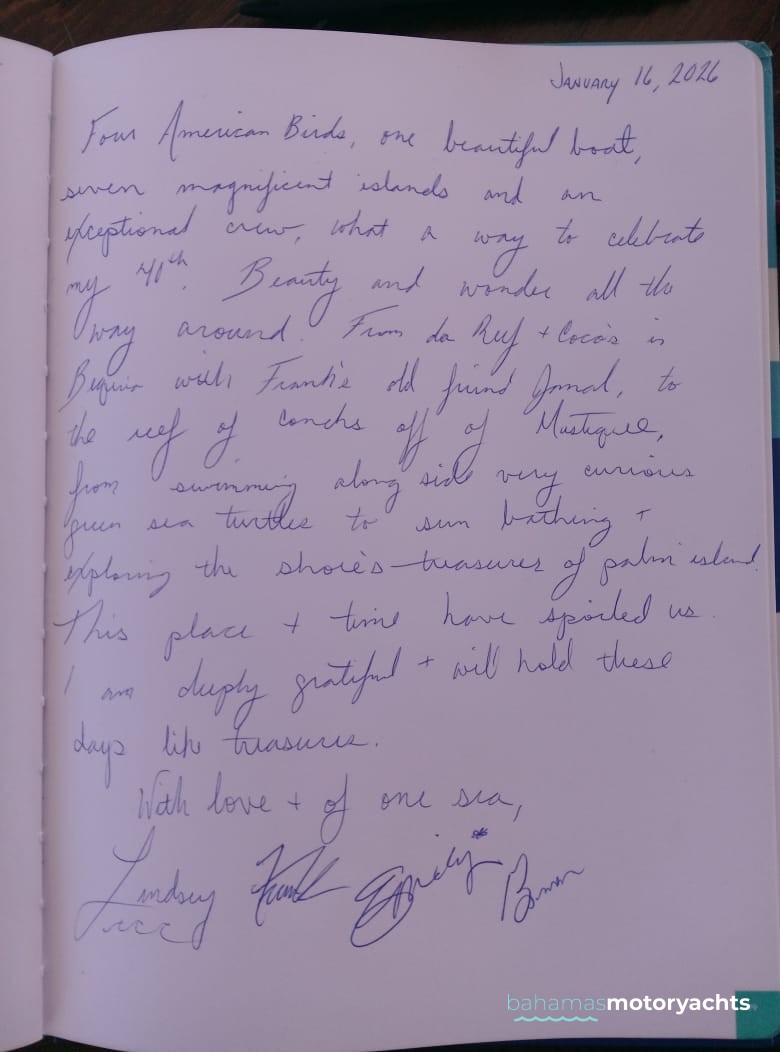 January 16, 2026
Four American Birds, one beautiful boat,
seven magnificent islands and an
exceptional crew, what a way to celebrate
my 40th. Beauty and wonder all the
way around. From da Reef + Coco's in
Bequia with Frank's old friend Jamal, to
the reef of conchs off of Mustique,
from swimming along side very curious
green sea turtles to sun bathing +
exploring the shore's treasures of palm island.
This place + time have spoiled us.
I am deeply grateful + will hold these
days like treasures.
With love + of one sea,
Lindsey Frank Emily
bahamasmotoryachts